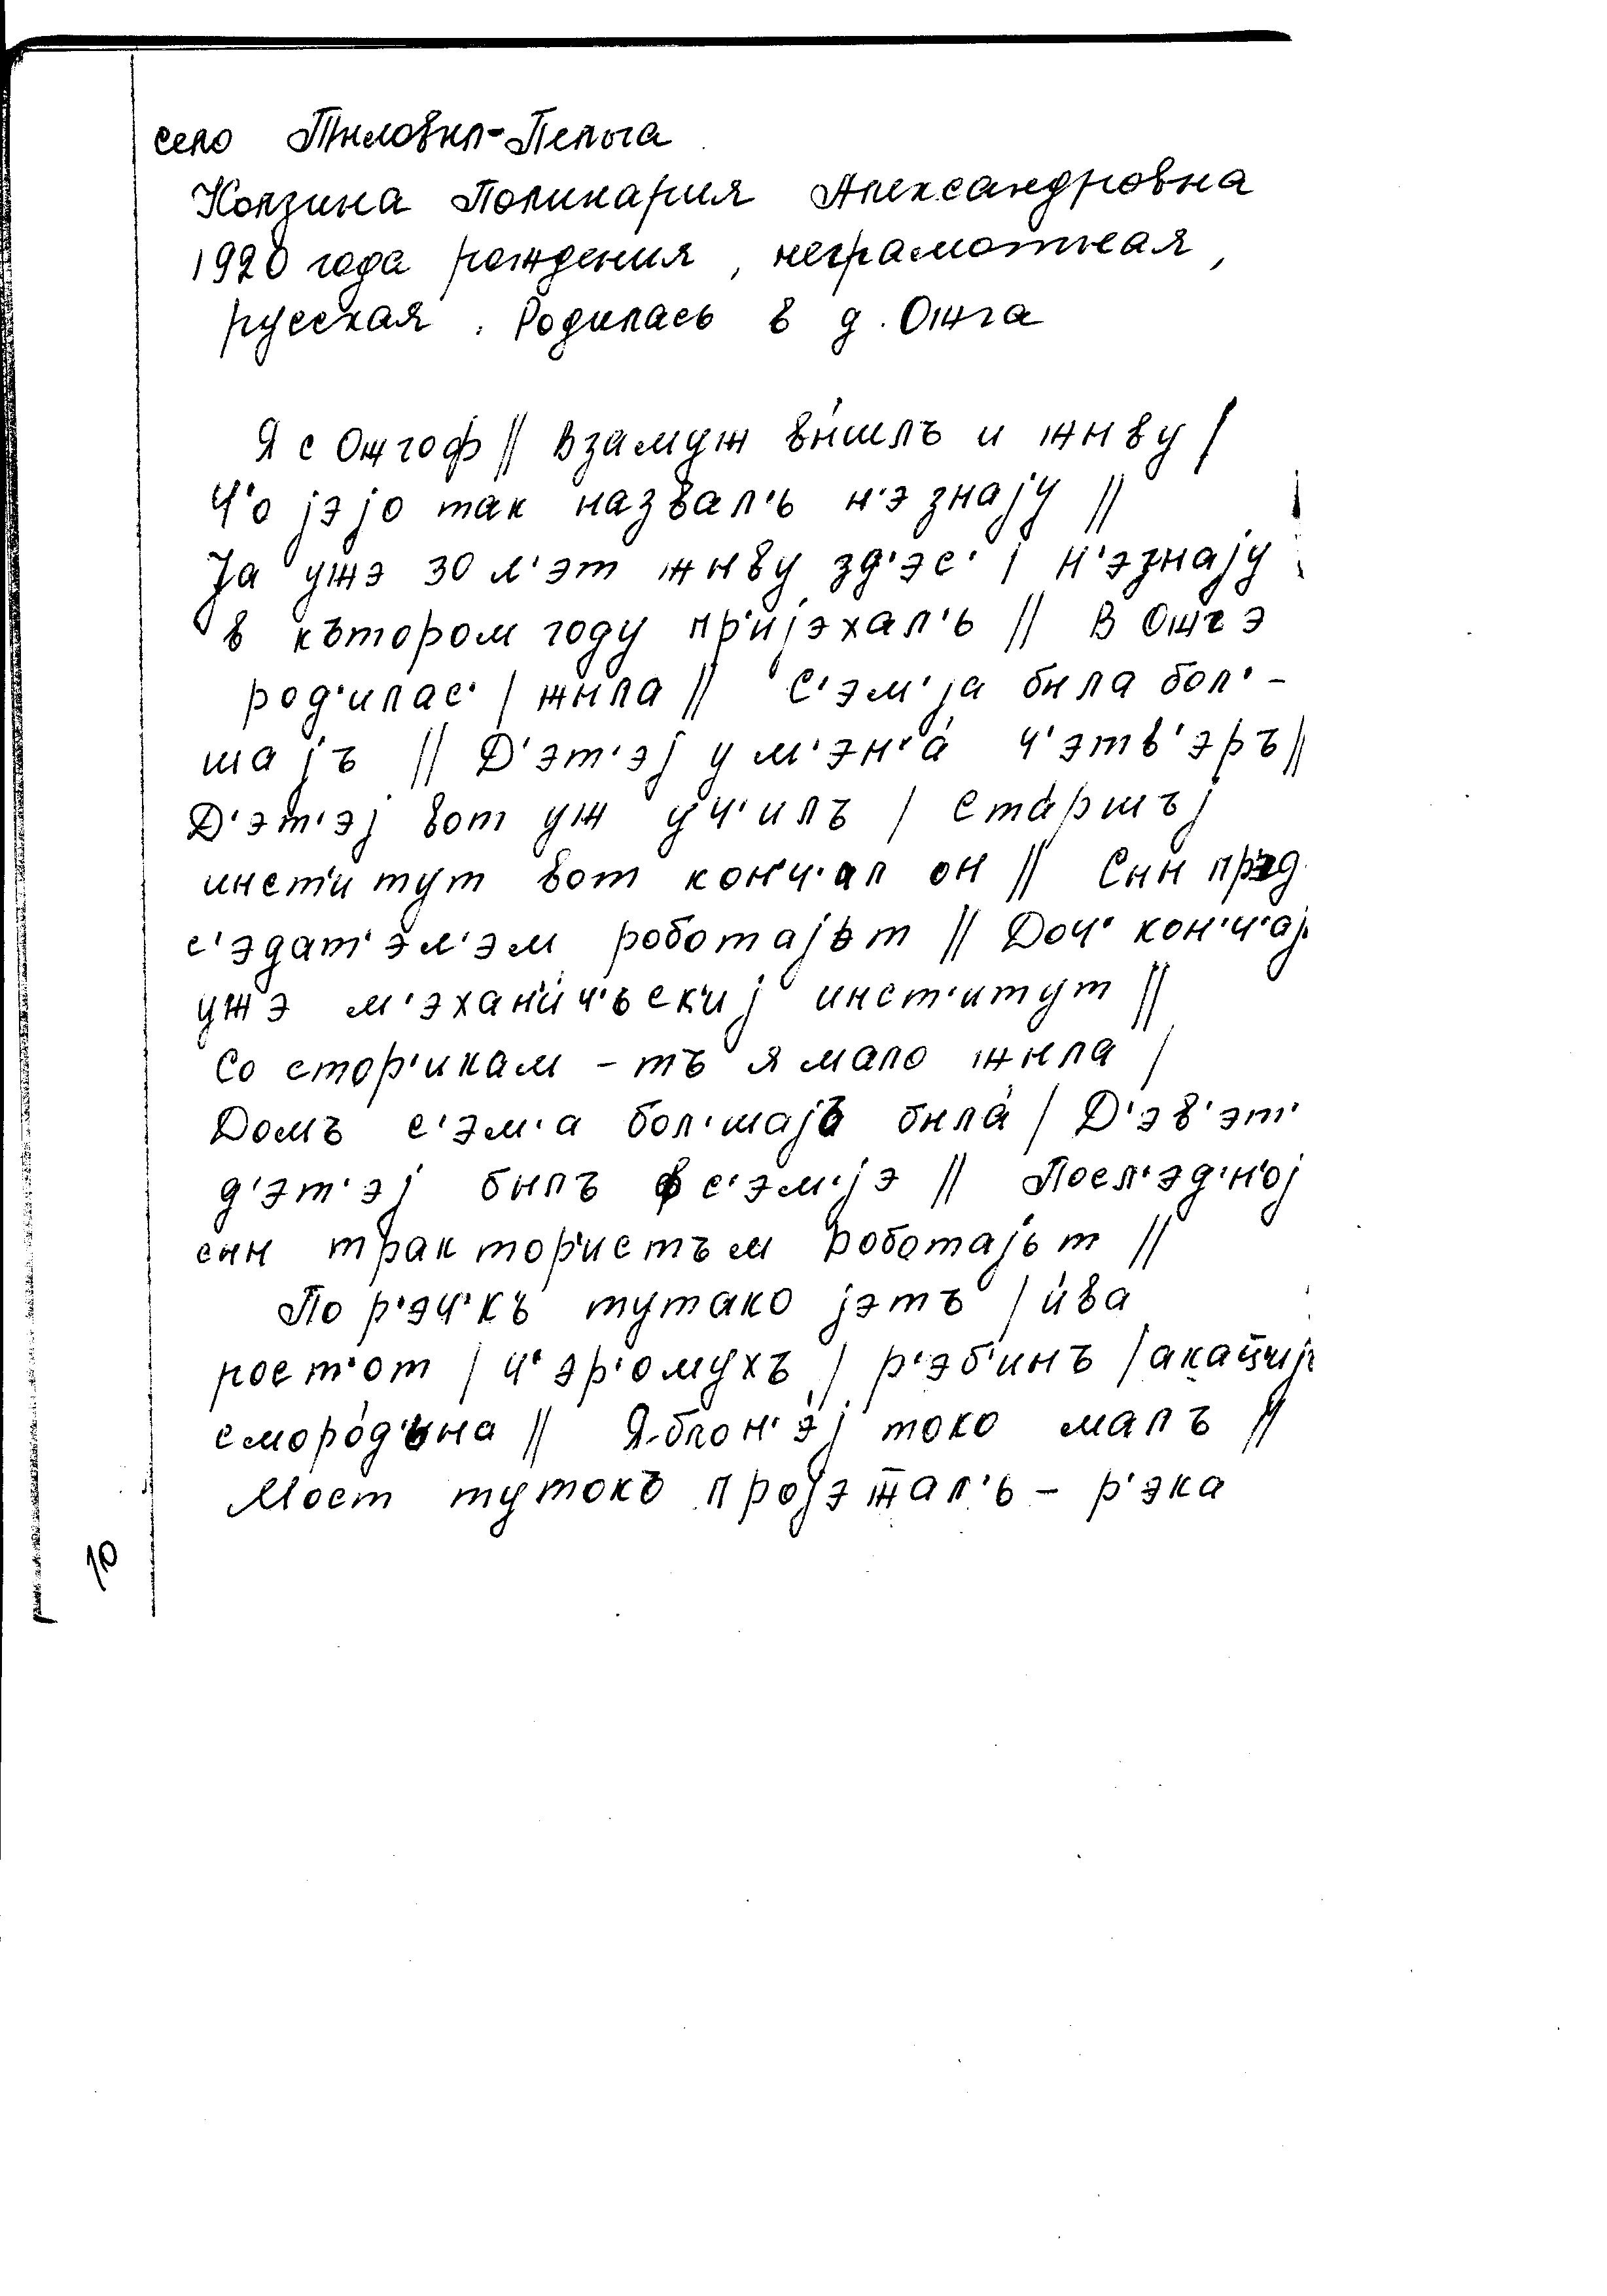 село Тыловыл-Пельга
Колзина Поликария Александровна
1920 года рождения, неграмотная,
русская. Родилась в д. Ожга
Я с Ожгоф // взамуж вы́шлъ и жыву /
Ч'о jэjо так назвал'ь н'э знаjу //
Jа ужэ 30 л'эт жыву зд'эс' / н'эзнаjу
в кътором году пр'иjэхал'ь // В Ожгэ
род'илас' / жыла // С'эм'jа была бол'-
шаjъ // Д'эт'эj у м'эн'а́ ч'этв'эръ //
Д'эт'эj вот уж уч'илъ / ста́ршъj
инст'итут вот кон'ч'ал он // Сын пр'эд
с'эдат'эл'эм роботаjьт // Доч' кон'ч'аj
ужэ м'эхан'и́ч'ъск'иj инст'итут //
Со стор'икам-тъ я мало жыла /
Домъ с'эм'а бол'шаjъ была́ / Д'эв'эт'
д'эт'эj былъ ф с'эм'jэ // Посл'эд'н'оj
сын трактор'истъм роботаjьт //
По р'эч'къ тутако jэтъ / и́ва
рост'от / ч'эр'омухъ / р'эб'инъ / акац̄иjь
сморо́д'ина // Я-блон'эj токо малъ //
Мост тутокъ проjэж̄ал'ь - р'эка
10